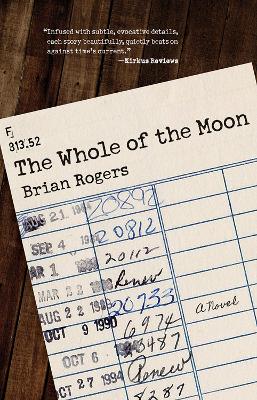 "Infused with subtle, evocative details,
each story beautifully, quietly beats on
against time's current."
—Kirkus Reviews
F
813.52
The Whole of the Moon
Brian Rogers
AUG 21
20892
SEP 4
20812
20112
Renew
AUG 22
20733
a Novel
OCT 9 1990
6974
23487
OCT 6
Renew
OCT 27 1994
8287